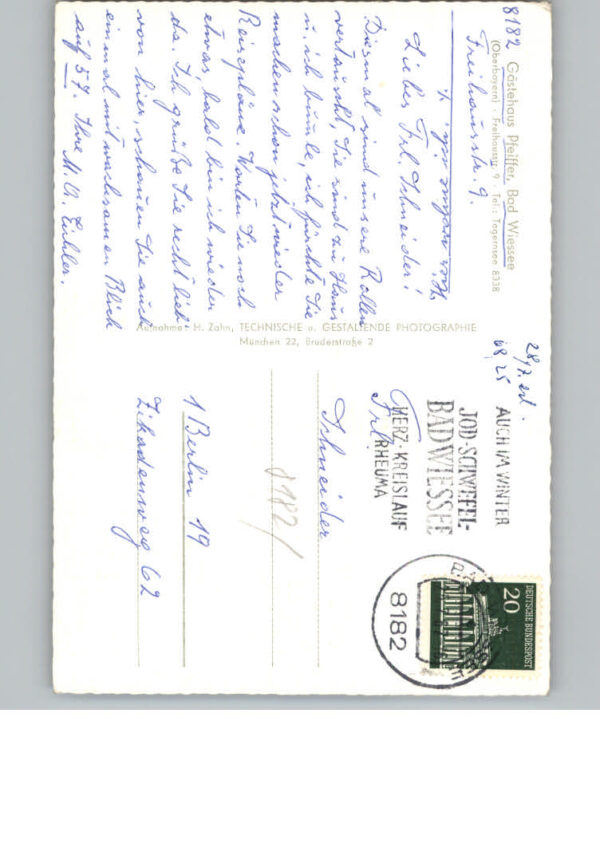 8182 Gästehaus Pfeiffer, Bad Wiessee
(Oberbayern) · Freihausstr. 9 · Tel.: Tegernsee 8338
Freihausstr. 9.
Liebes Frl. Schneider!
Diesmal sind unsere Rollen
vertauscht, Sie sind zu Haus
u. ich bumle, ich fürchte Sie
machen schon jetzt wieder
Reisepläne. Warten Sie noch
etwas, bald bin ich wieder
da. Ich grüße Sie recht lieb
von hier, schauen Sie auch
einmal mit wachsamen Blick
auf 57. Ihre M. A.
Aufnahme: H. Zahn, TECHNISCHE u. GESTALTENDE PHOTOGRAPHIE
München 22, Bruderstraße 2
28/7.
68,25
AUCH IM WINTER
JOD-SCHWEFEL-
BAD WIESSEE
HERZ-KREISLAUF
RHEUMA
8182
DEUTSCHE BUNDESPOST
20
Frl.
Schneider
8182/
1 Berlin 19
Zikadenweg 62